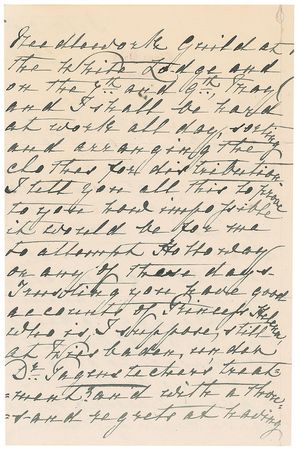 Needlework Guild at
the White Lodge and
on the 7th and 9th May
and I shall be hard
at work all day, sorting
and arranging the
clothes for distribution
I tell you all this to prove
to you how impossible
it would be for me
to attempt Holloway
on any of these days
Trusting you have good
accounts of Princess Helena
who is, I suppose, still
at Wiesbaden, under
Dr Pagenstechers treat=
=ment? and with a thou=
=s-and regrets at having